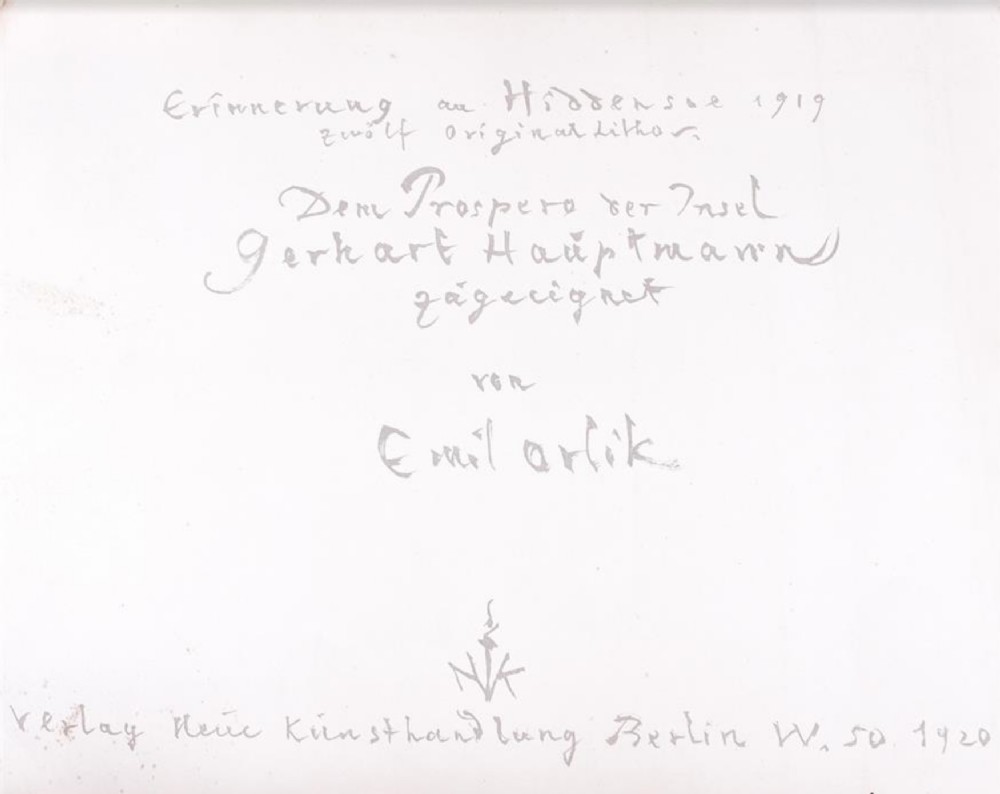 Erinnerung an Hiddensoe 1919
zwölf Original Lithos.
Dem Prospero der Insel
Gerhart Hauptmann
zugeeignet
von
Emil Orlik
NK
Verlag Neue Kunsthandlung Berlin W. 50 1920